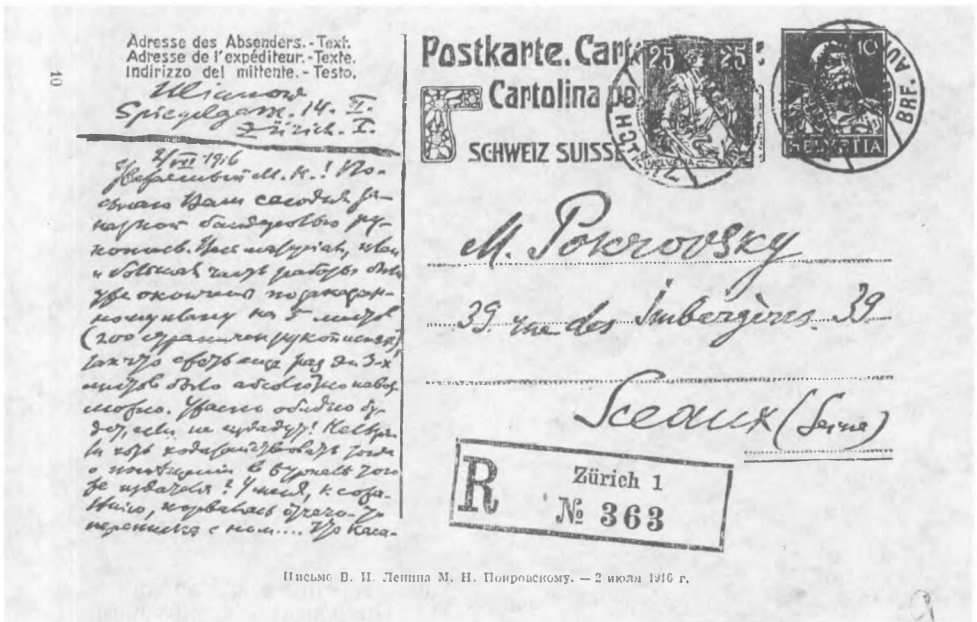 Adresse des Absenders.-Text.
Adresse de l'expéditeur.-Texte.
Indirizzo del mittente.-Testo.
10
Ulianow
Spiegelgasse. 14. II.
Zürich. I.
2/VII 1916
Уважаемый М. Н.! По-
сылаю Вам сегодня за-
казной бандеролью ру-
копись. Весь материал, план
и большая часть работы были
уже окончены по заказан-
ному плану на 5 листов
(200 страничек рукописи),
так что сжать еще раз до 3-х
листов было абсолютно невоз-
можно. Ужасно обидно бу-
дет, если не издадут! Нельзя
ли хоть ходатайствовать тогда
о помещении в журнале того
же издателя? У меня, к сожа-
лению, порвалась отчего-то
переписка с ним.... Что каса-
Postkarte. Cart
Cartolina po
SCHWEIZ SUISSE
25 25
HELVETIA
10
HELVETIA
BRF. AU
M. Pokrovsky
39 rue des Imbergères. 39
Sceaux (Seine)
R
Zürich 1
№ 363
Письмо В. И. Ленина М. Н. Покровскому. — 2 июля 1916 г.